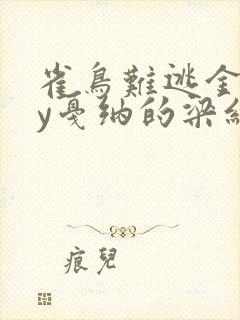 雀鳥難逃金
y戛纳的梁
痕兒